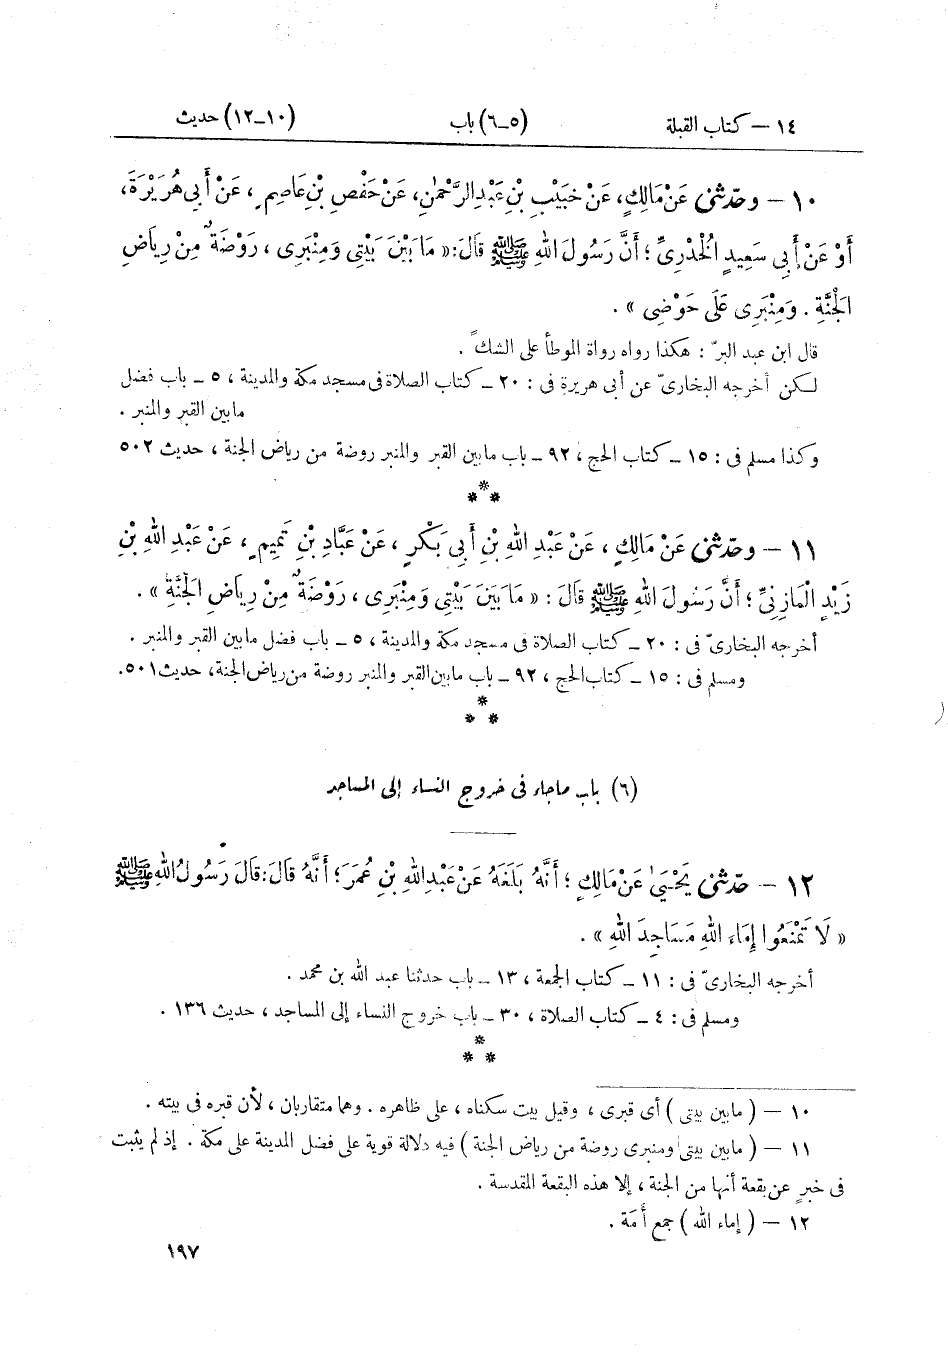 ١٤ – كتاب القبلة (٥–٦) باب (١٠–١٢) حديث
١٠ – وحدّثنى عَنْ مَالِكٍ، عَنْ خُبَيْبِ بْنِ عَبْدِ الرَّحْمٰنِ، عَنْ حَفْصِ بْنِ عَاصِمٍ، عَنْ أَبِي هُرَيْرَةَ،
أَوْ عَنْ أَبِي سَعِيدٍ الْخُدْرِيِّ؛ أَنَّ رَسُولَ اللهِ ﷺ قَالَ: « مَا بَيْنَ بَيْتِى وَمِنْبَرِى، رَوْضَةٌ مِنْ رِيَاضِ
الْجَنَّةِ. وَمِنْبَرِى عَلَى حَوْضِى ».
قال ابن عبد البرّ: هكذا رواه رواة الموطأ على الشك.
لكن أخرجه البخارىّ عن أبى هريرة فى: ٢٠ – كتاب الصلاة فى مسجد مكة والمدينة، ٥ – باب فضل
مابين القبر والمنبر.
وكذا مسلم فى: ١٥ – كتاب الحج، ٩٢ – باب مابين القبر والمنبر روضة من رياض الجنة، حديث ٥٠٢
*
* *
١١ – وحدّثنى عَنْ مَالِكٍ، عَنْ عَبْدِ اللهِ بْنِ أَبِي بَكْرٍ، عَنْ عَبَّادِ بْنِ تَمِيمٍ، عَنْ عَبْدِ اللهِ بْنِ
زَيْدٍ الْمَازِنِيِّ؛ أَنَّ رَسُولَ اللهِ ﷺ قَالَ: « مَا بَيْنَ بَيْتِى وَمِنْبَرِى، رَوْضَةٌ مِنْ رِيَاضِ الْجَنَّةِ ».
أخرجه البخارىّ فى: ٢٠ – كتاب الصلاة فى مسجد مكة والمدينة، ٥ – باب فضل مابين القبر والمنبر.
ومسلم فى: ١٥ – كتاب الحج، ٩٢ – باب مابين القبر والمنبر روضة من رياض الجنة، حديث ٥٠١.
*
* *
(٦) باب ماجاء فى خروج النساء إلى المساجد
١٢ – حدّثنى يَحْيَىٰ عَنْ مَالِكٍ؛ أَنَّهُ بَلَغَهُ عَنْ عَبْدِ اللهِ بْنِ عُمَرَ؛ أَنَّهُ قَالَ: قَالَ رَسُولُ اللهِ ﷺ
« لَا تَمْنَعُوا إِمَاءَ اللهِ مَسَاجِدَ اللهِ ».
أخرجه البخارىّ فى: ١١ – كتاب الجمعة، ١٣ – باب حدثنا عبد الله بن محمد.
ومسلم فى: ٤ – كتاب الصلاة، ٣٠ – باب خروج النساء إلى المساجد، حديث ١٣٦.
*
* *
١٠ – ( مابين بيتى ) أى قبرى، وقيل بيت سكناه، على ظاهره. وهما متقاربان، لأن قبره فى بيته.
١١ – ( مابين بيتى ومنبرى روضة من رياض الجنة ) فيه دلالة قوية على فضل المدينة على مكة. إذ لم يثبت
فى خبرٍ عن بقعة أنها من الجنة، إلا هذه البقعة المقدسة.
١٢ – ( إماء الله ) جمع أَمَة.
١٩٧